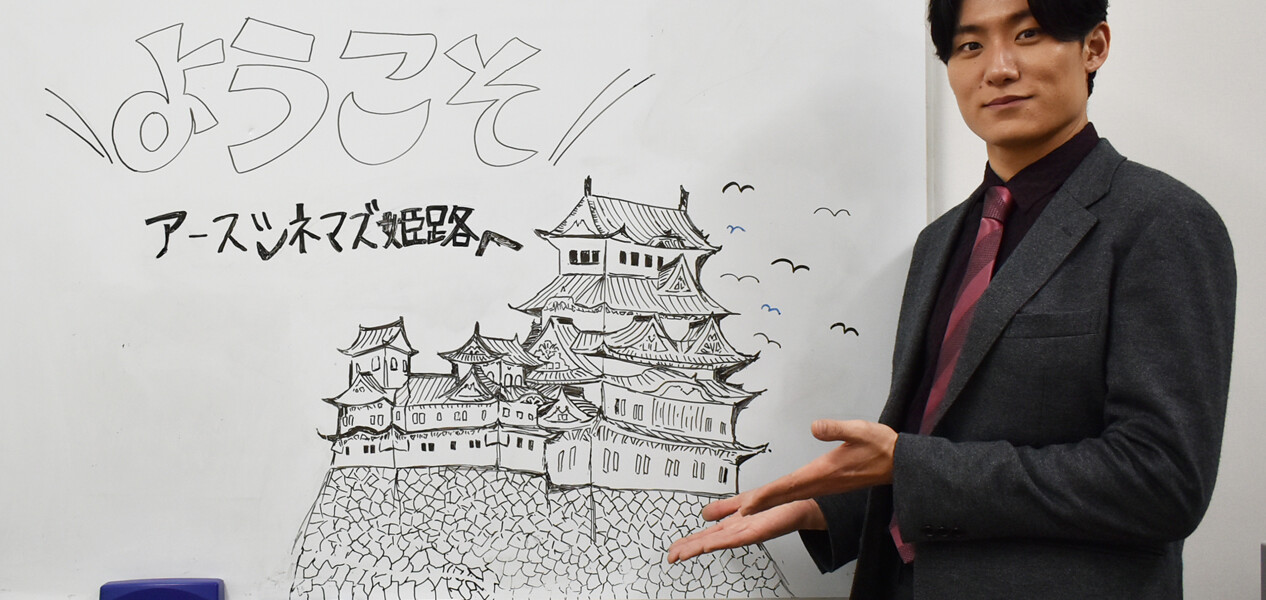 ようこそ
アースシネマズ姫路へ